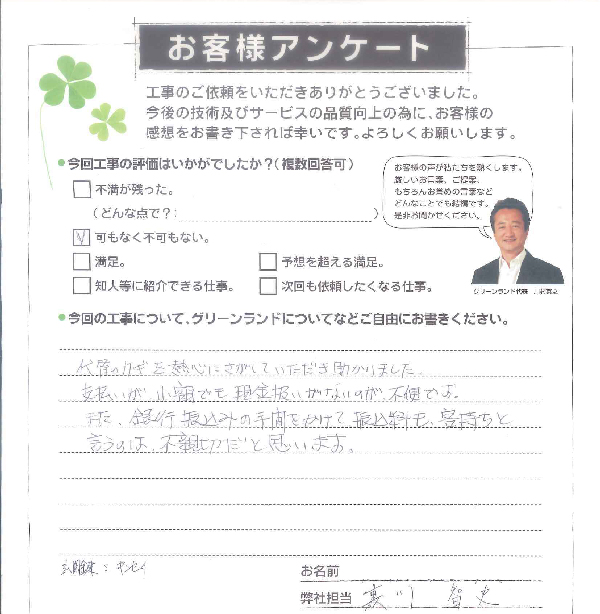 お客様アンケート
工事のご依頼をいただきありがとうございました。
今後の技術及びサービスの品質向上の為に、お客様の
感想をお書き下されば幸いです。よろしくお願いします。
今回工事の評価はいかがでしたか?(複数回答可)
不満が残った。
(どんな点で?: )
可もなく不可もない。
満足。
予想を超える満足。
知人等に紹介できる仕事。
次回も依頼したくなる仕事。
お客様の声が私たちを熱くします。
厳しいお言葉、ご提案、
もちろんお誉めの言葉など
どんなことでも結構です。
是非お聞かせください。
グリーンランド代表
今回の工事について、グリーンランドについてなどご自由にお書きください。
代替のカギを熱心にさがしていただき助かりました。
支払いが小額でも現金扱いがないのが、不便でよ。
また、銀行振込みの手間をかけて振込料も、客持ちと
言うのは、不親切だと思います。
お名前
弊社担当